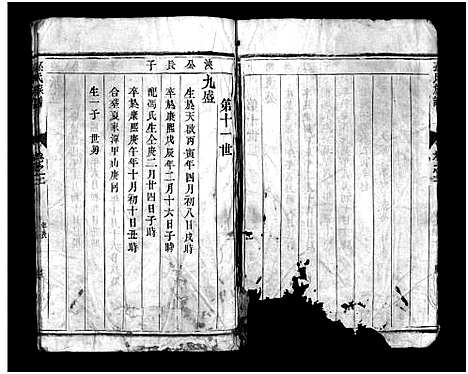 第十一世
浹公長子
九盛
生於天啟丙寅年四月初八日戌時
卒於康熙戊辰年二月十六日子時
配馮氏生仝庚二月廿四日子時
卒於康熙庚午年十月初十日丑時
合墓夏家潭甲山庚向
生一子 世勇